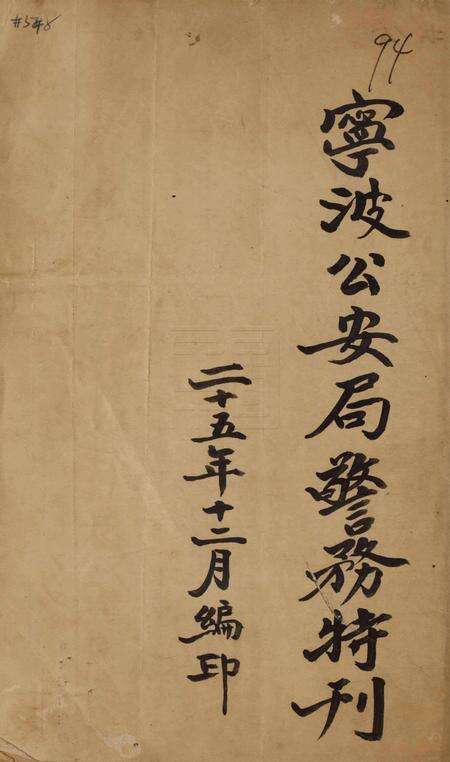 寧波公安局警務特刊
二十五年十二月編印
94